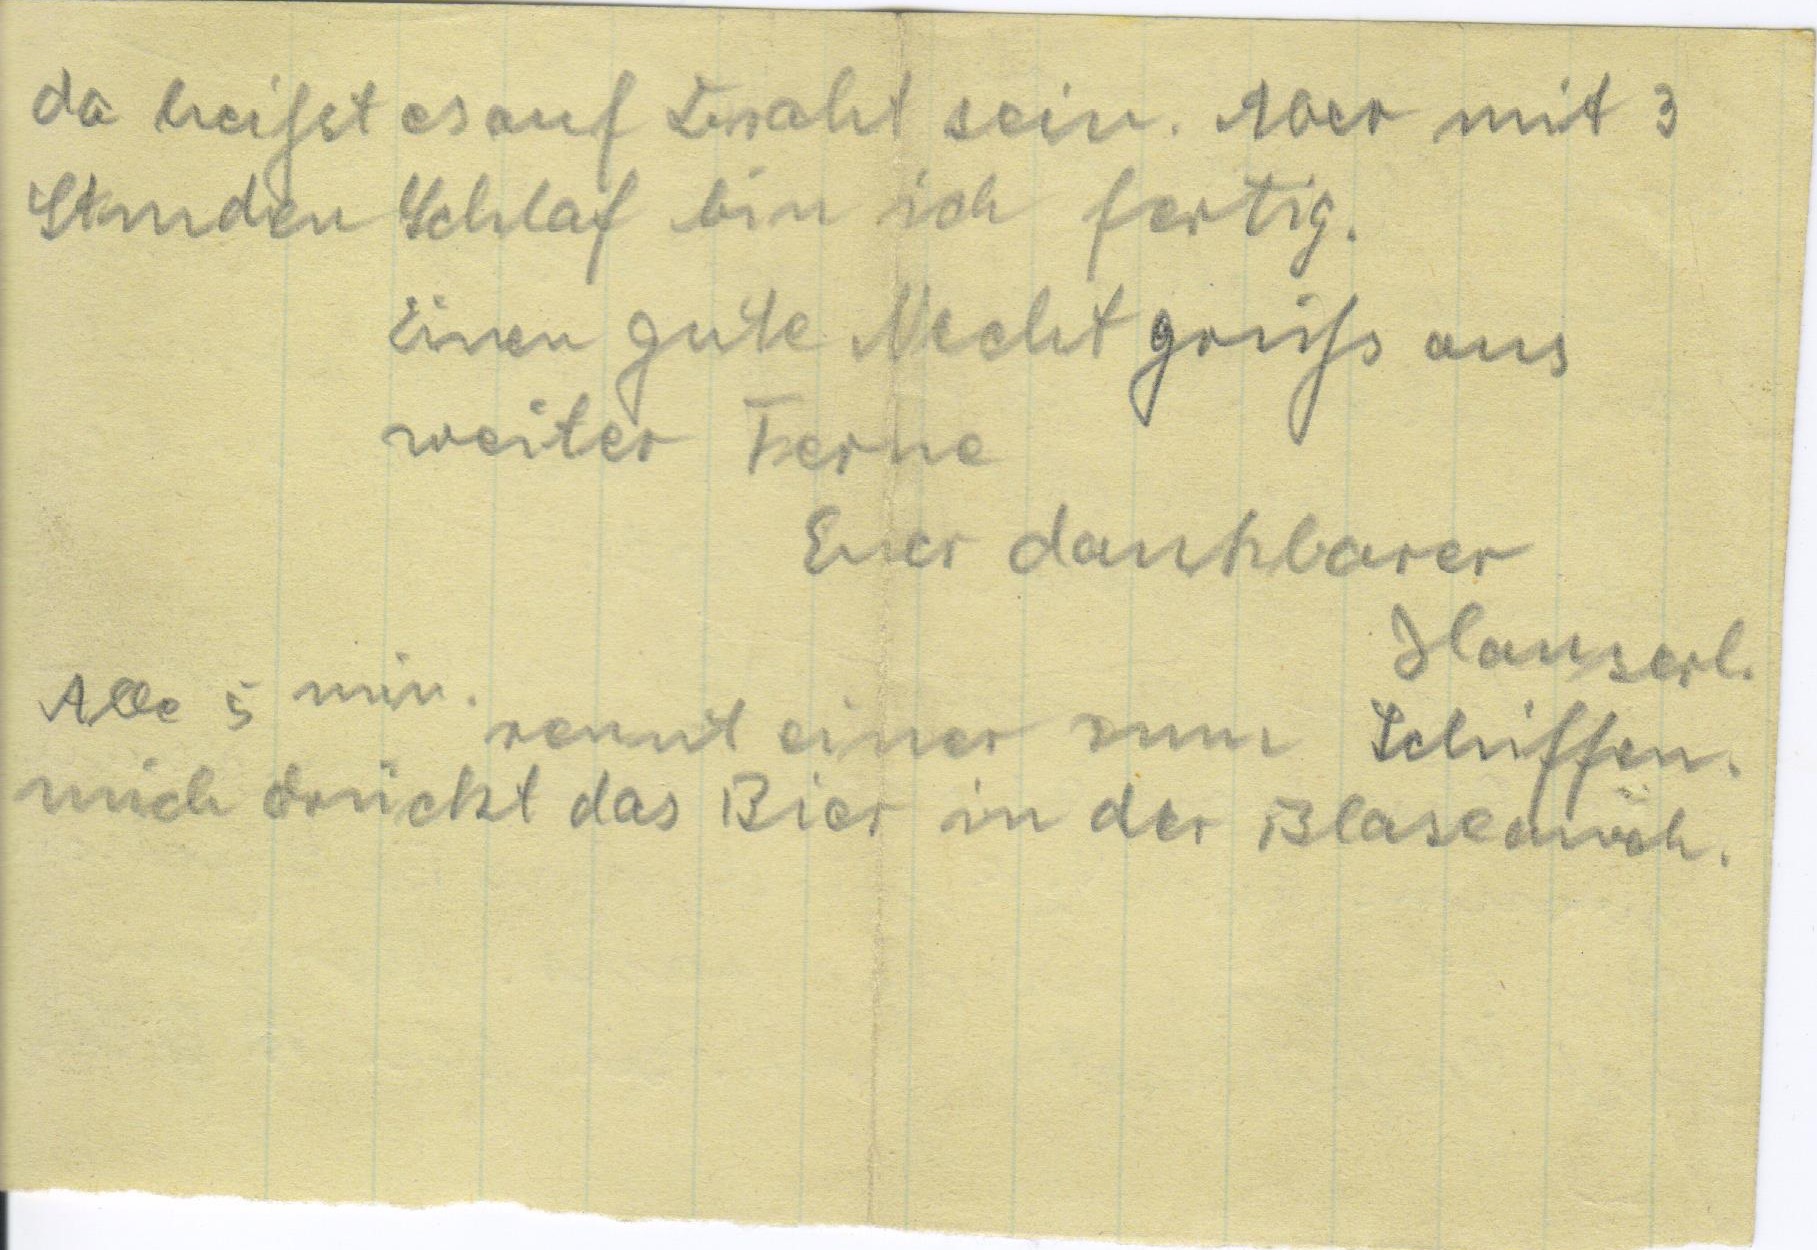 da heisst es auf Draht sein. Aber mit 3
Stunden Schlaf bin ich fertig.
Einen gute Nacht gruss aus
weiter Ferne
Euer dankbarer
Hanserl.
Alle 5 min. rennt einer zum Schiffen.
mich drückt das Bier in der Blase